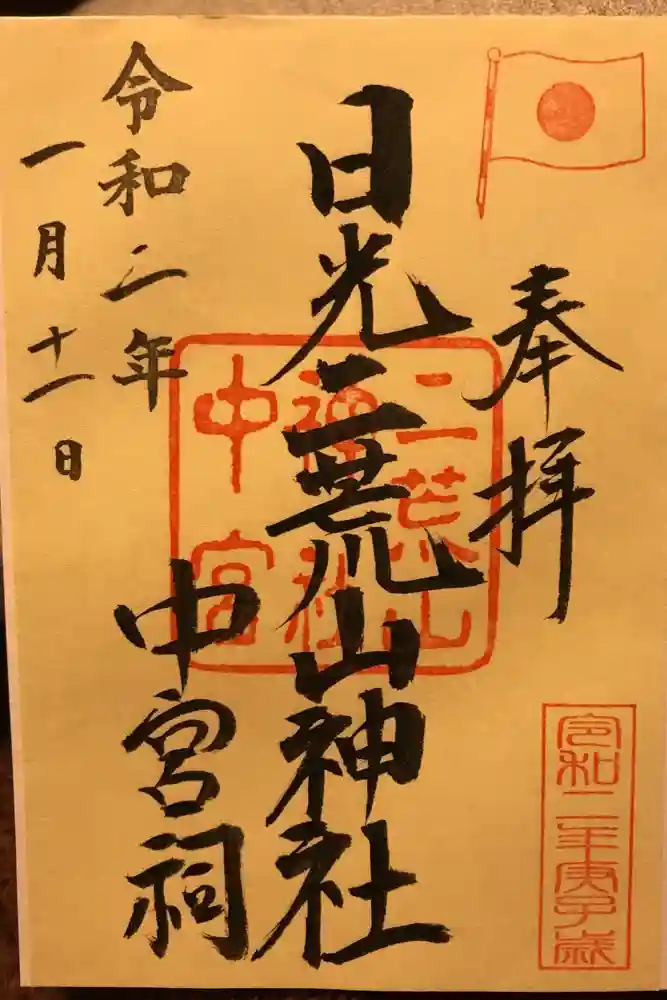 奉拝
日光二荒山神社
中宮祠
令和二年
一月十一日
二荒山
神社
中宮
令和二年庚子歳